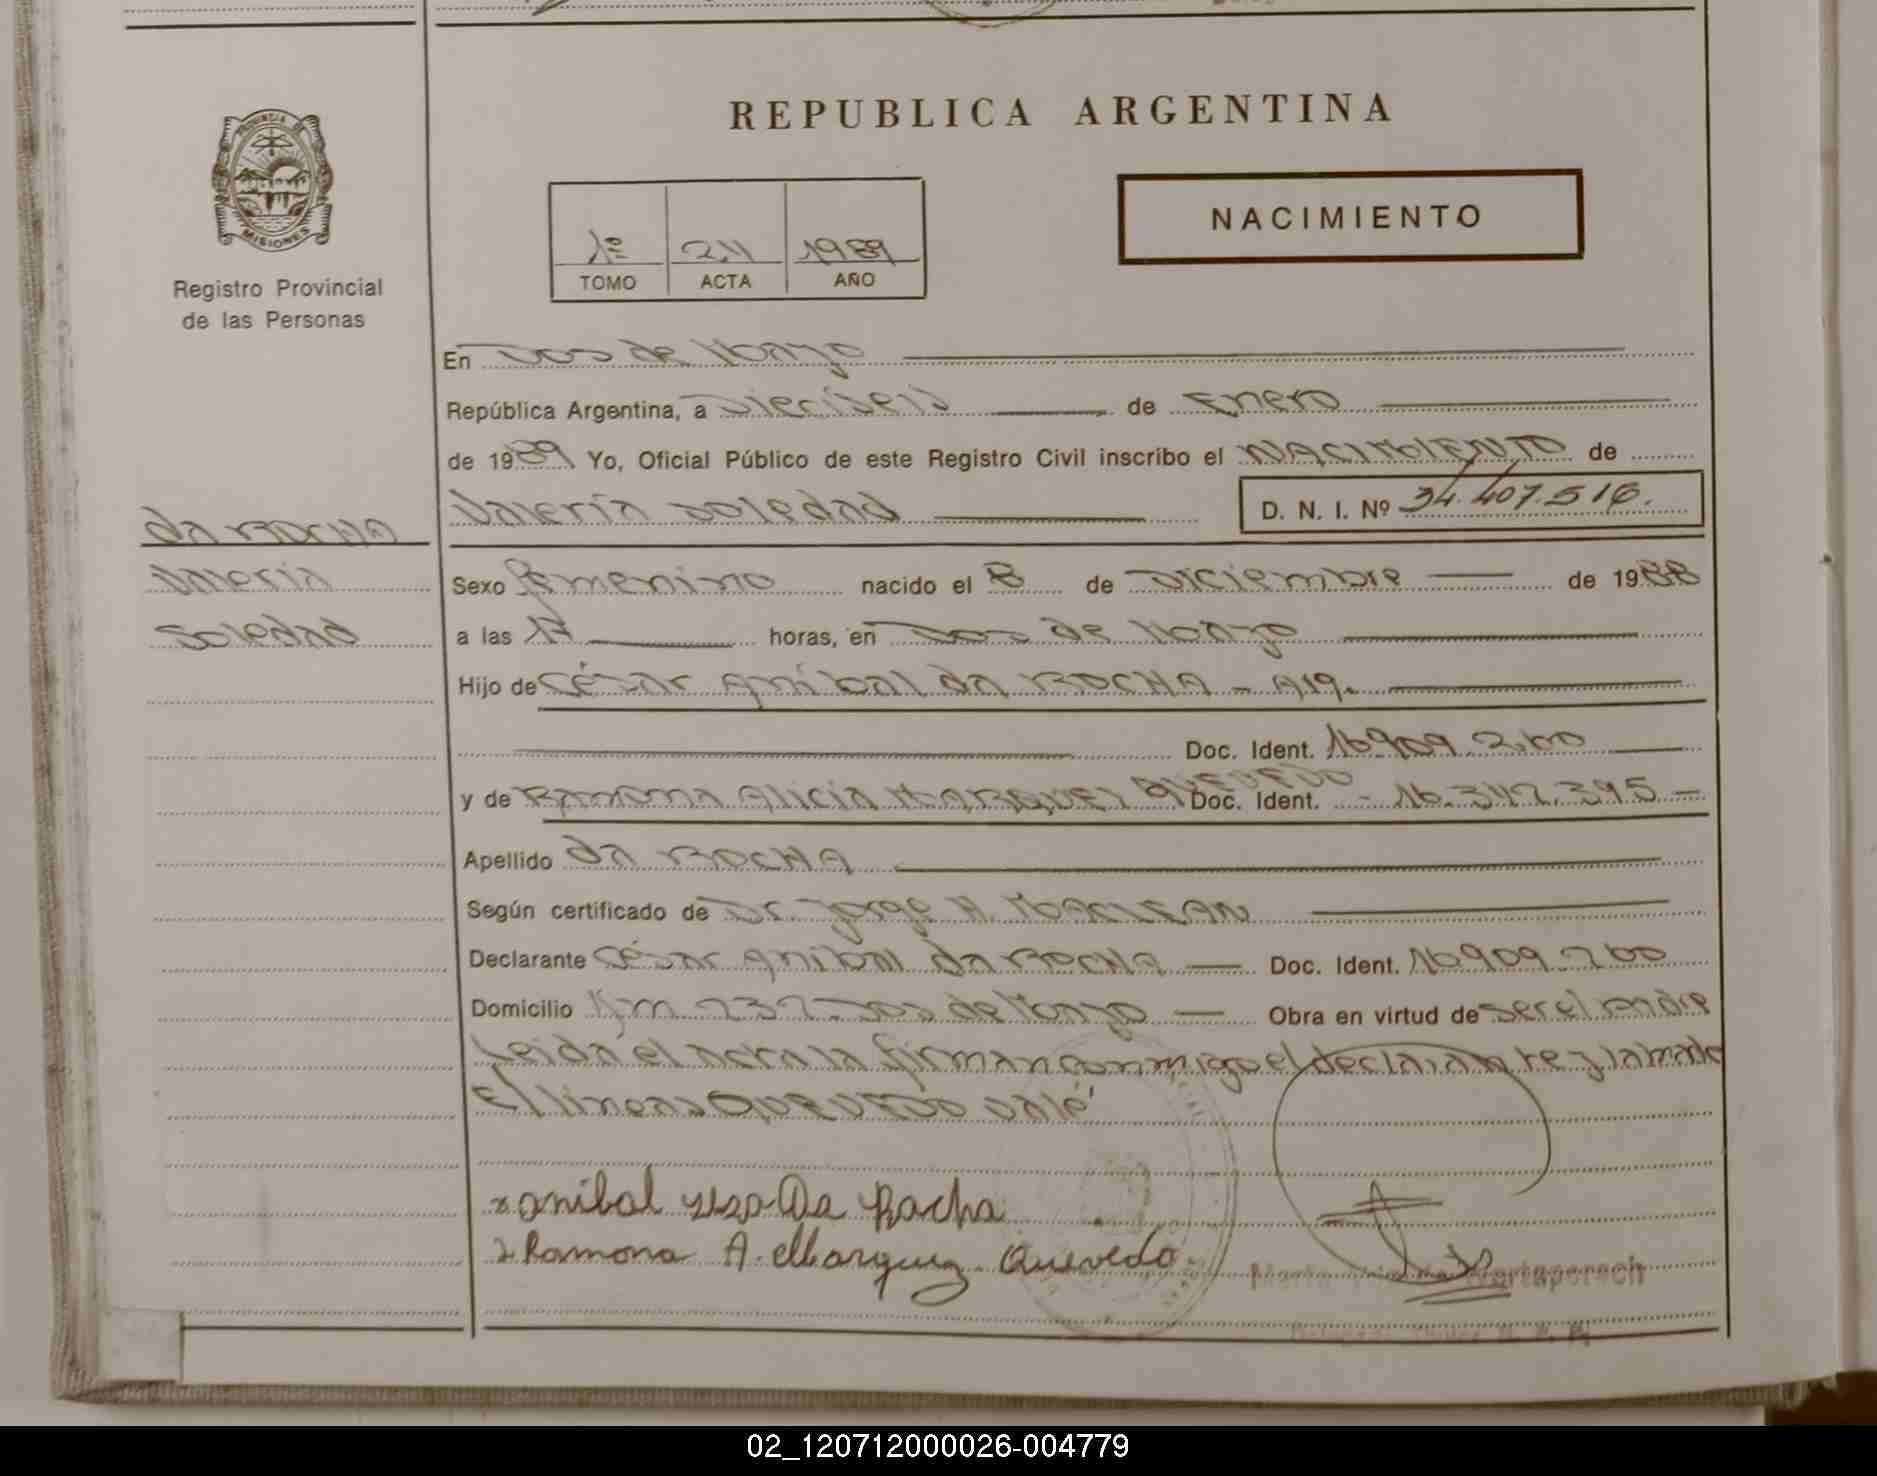 REPUBLICA ARGENTINA
PROVINCIA DE MISIONES
Registro Provincial
de las Personas
NACIMIENTO
1º 211 1989
TOMO ACTA AÑO
En Dos de Mayo
República Argentina, a Dieciseis de Enero
de 1989 Yo, Oficial Público de este Registro Civil inscribo el NACIMIENTO de
Valeria Soledad D. N. I. Nº 34.407.516.
da ROCHA
Valeria
Soledad
Sexo femenino nacido el 8 de Diciembre de 1988
a las 17 horas, en Dos de Mayo
Hijo de César Anibal da ROCHA - Arg.
Doc. Ident. 16.909.260
y de Ramona Alicia MARQUEZ QUEVEDO Doc. Ident. - 16.342.395 -
Apellido da ROCHA
Según certificado de Dr. Jorge H. MACLEAN
Declarante César Anibal da ROCHA Doc. Ident. 16909.260
Domicilio Km 237 - Dos de Mayo Obra en virtud de ser el padre
Leida el acta la firman conmigo el declarante y la madre
E/lineas QUEVEDO vale
Anibal da Rocha
Ramona A. Marquez Quevedo
02_120712000026-004779